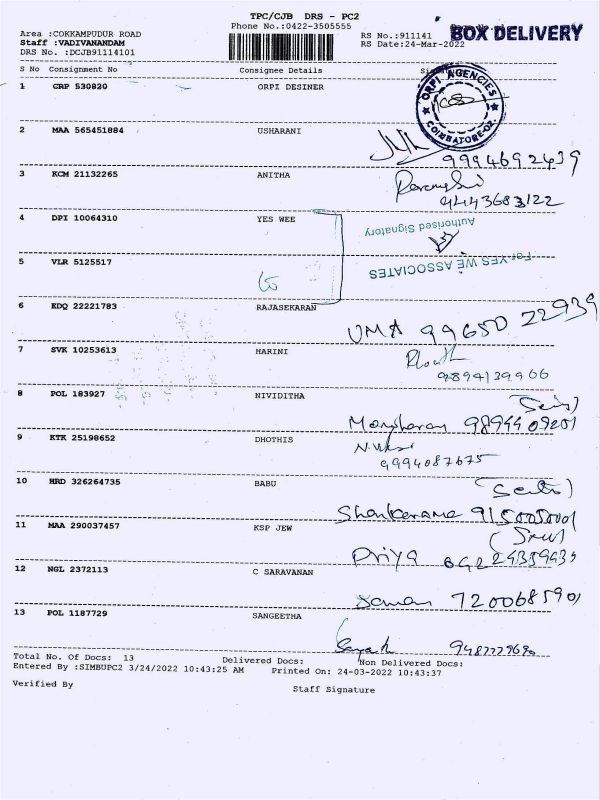 TPC/CJB DRS - PC2
Phone No.:0422-3505555
BOX DELIVERY
Area :COKKAMPUDUR ROAD
Staff :VADIVANANDAM
DRS No. :DCJB91114101
RS No.:911141
RS Date:24-Mar-2022
S No Consignment No Consignee Details
1 GRP 530820 ORPI DESINER
ORPI AGENCIES
COIMBATORE-02.
2 MAA 565451884 USHARANI
9994692439
3 KCM 21132265 ANITHA
9443683122
4 DPI 10064310 YES WEE
Authorised Signatory
5 VLR 5125517
For YES WE ASSOCIATES
6 EDQ 22221783 RAJASEKARAN
UMA 99650 22939
7 SVK 10253613 HARINI
9894139966
8 POL 183927 NIVIDITHA
Manoharan 9894409201
9 KTK 25198652 DHOTHIS
9994087675
10 HRD 326264735 BABU
11 MAA 290037457 KSP JEW
Priya
12 NGL 2372113 C SARAVANAN
13 POL 1187729 SANGEETHA
Total No. Of Docs: 13 Delivered Docs: Non Delivered Docs:
Entered By :SIMBUPC2 3/24/2022 10:43:25 AM Printed On: 24-03-2022 10:43:37
Verified By
Staff Signature